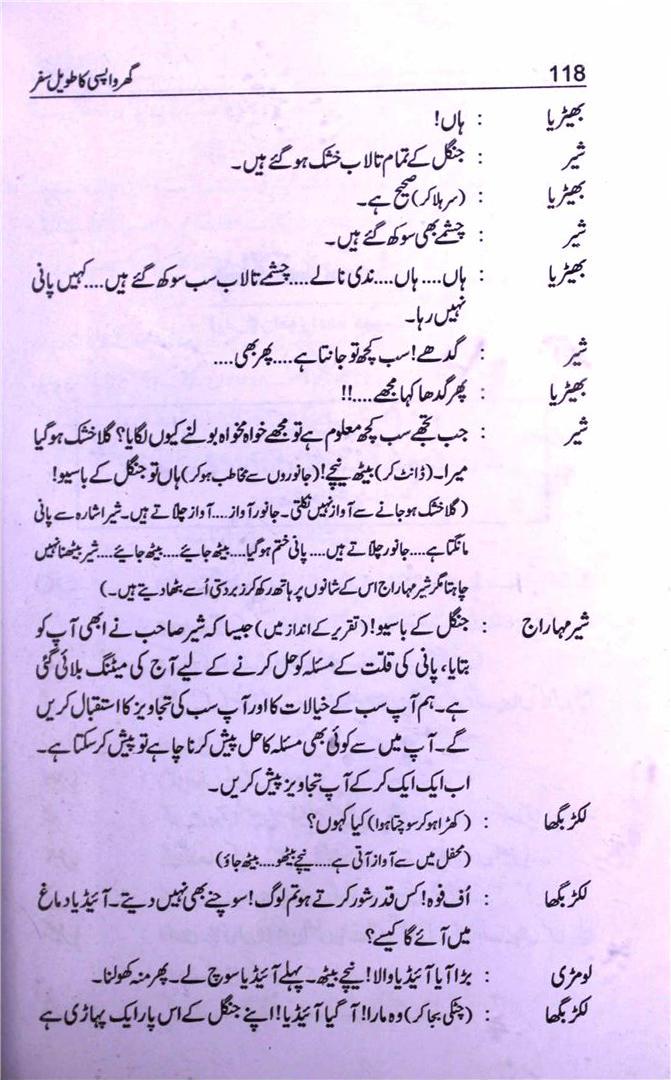 118 گھر واپسی کا طویل سفر
بھیڑیا : ہاں!
شیر : جنگل کے تمام تالاب خشک ہو گئے ہیں۔
بھیڑیا : (سر ہلا کر) صحیح ہے۔
شیر : چشمے بھی سوکھ گئے ہیں۔
بھیڑیا : ہاں.... ہاں.... ندی نالے.... چشمے تالاب سب سوکھ گئے ہیں.... کہیں پانی
نہیں رہا۔
شیر : گدھے! سب کچھ تو جانتا ہے.... پھر بھی ....
بھیڑیا : پھر گدھا کہا مجھے....!!
شیر : جب تجھے سب کچھ معلوم ہے تو مجھے خواہ مخواہ بولنے کیوں لگایا؟ گلا خشک ہو گیا
میرا۔ (ڈانٹ کر) بیٹھ نیچے! (جانوروں سے مخاطب ہو کر) ہاں تو جنگل کے باسیو!
(گلا خشک ہو جانے سے آواز نہیں نکلتی۔ جانور آواز.... آواز چلاتے ہیں۔ شیر اشارہ سے پانی
مانگتا ہے.... جانور چلاتے ہیں.... پانی ختم ہو گیا.... بیٹھ جایئے.... بیٹھ جایئے.... شیر بیٹھنا نہیں
چاہتا مگر شیر مہاراج اس کے شانوں پر ہاتھ رکھ کر زبردستی اُسے بٹھا دیتے ہیں۔)
شیر مہاراج : جنگل کے باسیو! (تقریر کے انداز میں) جیسا کہ شیر صاحب نے ابھی آپ کو
بتایا، پانی کی قلت کے مسئلہ کو حل کرنے کے لیے آج کی میٹنگ بلائی گئی
ہے۔ ہم آپ سب کے خیالات کا اور آپ سب کی تجاویز کا استقبال کریں
گے۔ آپ میں سے کوئی بھی مسئلہ کا حل پیش کرنا چاہے تو پیش کر سکتا ہے۔
اب ایک ایک کر کے آپ تجاویز پیش کریں۔
لکڑ بگھا : (کھڑا ہو کر سوچتا ہوا) کیا کہوں؟
(محفل میں سے آواز آتی ہے.... نیچے بیٹھو.... بیٹھ جاؤ)
لکڑ بگھا : اُف فوہ! کس قدر شور کرتے ہو تم لوگ! سوچنے بھی نہیں دیتے۔ آئیڈیا دماغ
میں آئے گا کیسے؟
لومڑی : بڑا آیا آئیڈیا والا! نیچے بیٹھ۔ پہلے آئیڈیا سوچ لے۔ پھر منہ کھولنا۔
لکڑ بگھا : (چٹکی بجا کر) وہ مارا! آ گیا آئیڈیا! اپنے جنگل کے اس پار ایک پہاڑی ہے